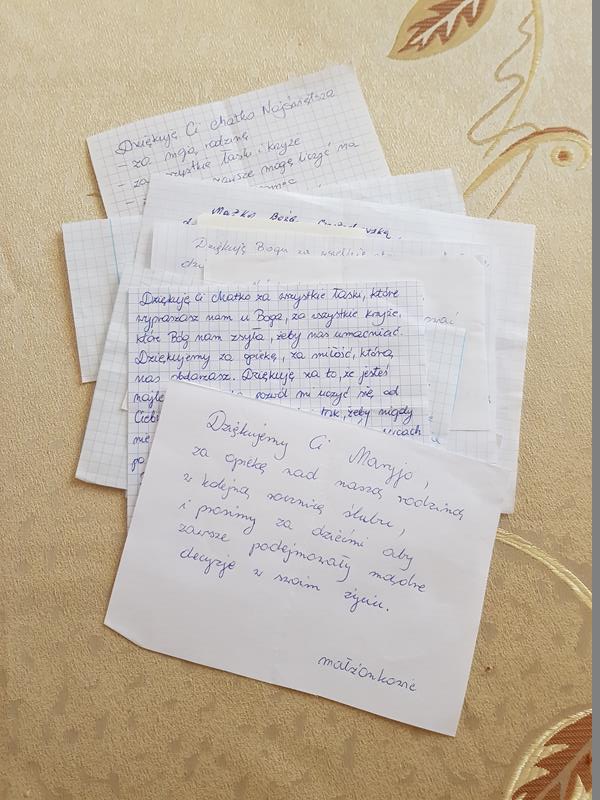 Dziękuję Ci Matko Najświętsza
- za moją rodzinę
- za wszystkie łaski i krzyże
zawsze mogę liczyć na
Matko Boża
Dziękuję Bogu za wszelkie
Dziękuję Ci Matko za wszystkie łaski, które
wypraszasz nam u Boga, za wszystkie krzyże,
które Bóg nam zsyła, żeby nas umacniać.
Dziękujemy za opiekę, za miłość, którą
nas obdarzasz. Dziękuję za to, że jesteś
pozwól mi uczyć się od
Ciebie tak, żeby nigdy
nie
Dziękujemy Ci Maryjo,
za opiekę nad naszą rodziną
w kolejną rocznicę ślubu,
i prosimy za dziećmi aby
zawsze podejmowały mądre
decyzje w swoim życiu.
małżonkowie